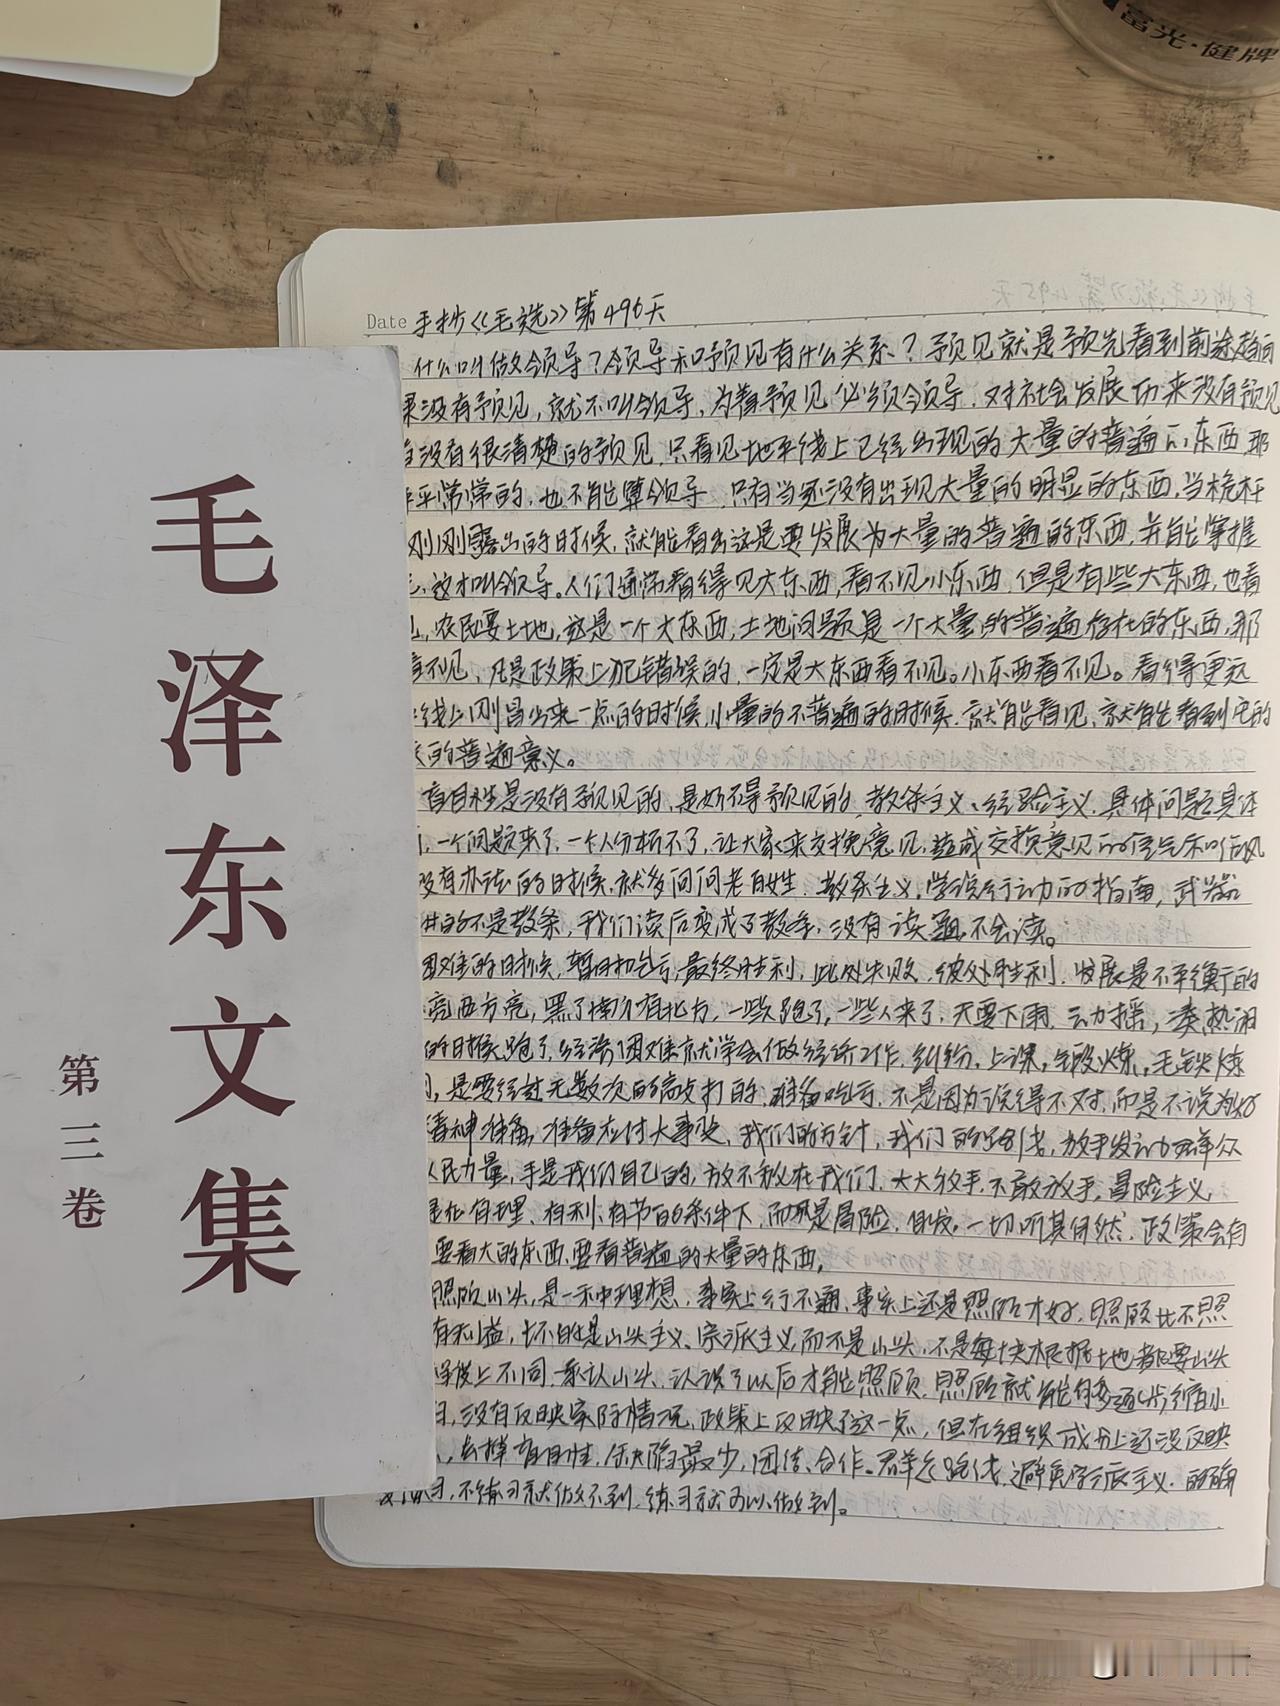 富光·健牌
毛泽东文集
第三卷
Date 手抄《毛选》第496天
什么叫做领导？领导和预见有什么关系？预见就是预先看到前途趋向
没有预见，就不叫领导，为着预见必须领导．对社会发展历来没有预见
没有很清楚的预见，只看见地平线上已经出现的大量的普遍的东西，那
平常常的，也不能算领导．只有当还没有出现大量的明显的东西，当桅杆
刚刚露出的时候，就能看出这是要发展为大量的普遍的东西，并能掌握
，这才叫领导。人们通常看得见大东西，看不见小东西．但是有些大东西，也看
，农民要土地，这是一个大东西，土地问题是一个大量的普遍存在的东西，那
看不见，凡是政策上犯错误的，一定是大东西看不见。小东西看不见。看得更远
线上刚冒出来一点的时候，小量的不普遍的时候．就能看见，就能看到它的
的普遍意义。
盲目性是没有预见的，是妨碍预见的，教条主义、经验主义．具体问题具体
，一个问题来了，一个人分析不了，让大家来交换意见，造成交换意见的空气和作风
没有办法的时候，就多问问老百姓．教条主义，学说行动的指南，武器
的不是教条，我们读后变成了教条，没有读通，不会读。
困难的时候，暂时的吃亏，最终胜利，此处失败，彼处胜利．发展是不平衡的
亮西方亮，黑了南方有北方，一些人跑了，一些人来了，天要下雨，动摇，凑热闹
的时候跑了，经济困难就学会做经济工作，纠纷，上课，锻炼，毛铁炼
，是要经过无数次的敲打的，准备吃亏．不是因为说得不对，而是不说为好
精神准备，准备应付大事变，我们的方针，我们的路线，放手发动群众
人民力量，手是我们自己的，放不放在我们．大大放手，不敢放手，冒险主义
是在有理、有利、有节的条件下，而不是冒险，自发，一切听其自然．政策会有
要看大的东西，要看普遍的大量的东西，
照顾山头，是一种理想，事实上行不通，事实上还是照顾才好，照顾比不照
有利益，坏的是山头主义、宗派主义，而不是山头，不是每块根据地都要山头
上不同，承认山头，认识了以后才能照顾，照顾就能够逐步缩小
，没有反映实际情况，政策上反映了这一点，但在组织成份上还没反映
，去掉盲目性，缺陷最少，团结、合作。群众路线，避免宗派主义．的确
习，不练习就做不到，练习就可以做到。